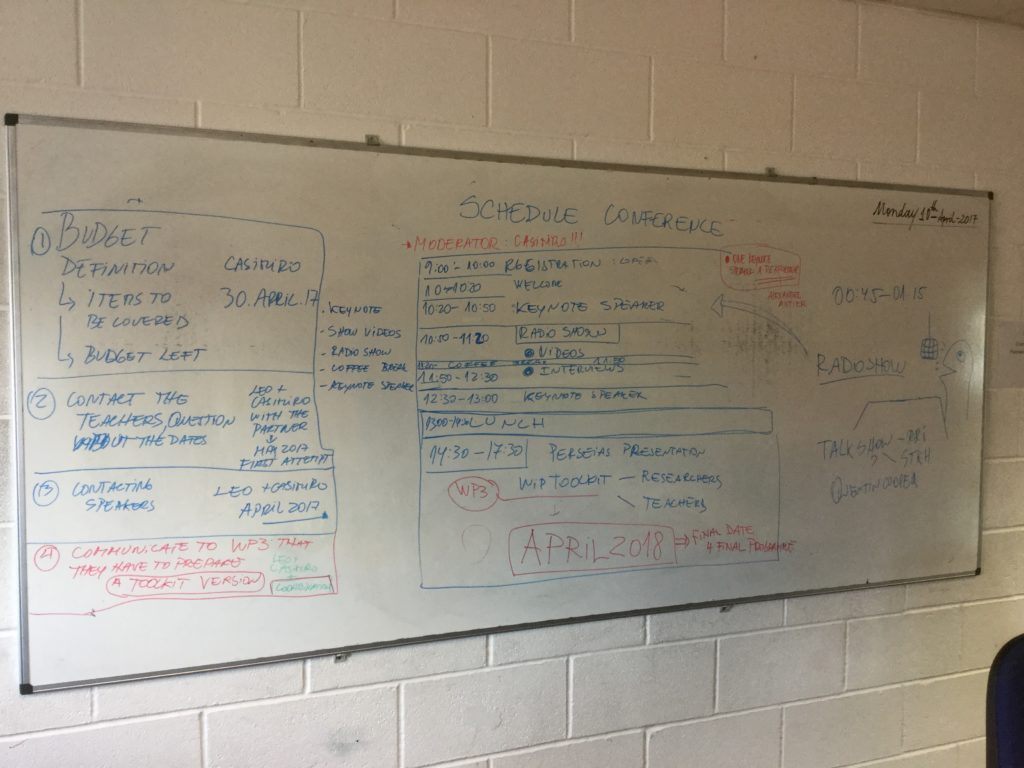 Monday 10th April-2017
SCHEDULE CONFERENCE
① BUDGET
DEFINITION CASIMIRO
↳ ITEMS TO 30.APRIL.17
BE COVERED
↳ BUDGET LEFT
② CONTACT THE
TEACHERS, QUESTION
THE DATES
LEO +
CASIMIRO
WITH THE
PARTNER
↓
MAY 2017
FIRST ATTEMPT
③ CONTACTING LEO + CASIMIRO
SPEAKERS APRIL 2017
④ COMMUNICATE TO WP3 THAT
THEY HAVE TO PREPARE
A TOOLKIT VERSION
LEO +
CASIMIRO
+
- KEYNOTE
- SHOW VIDEOS
- RADIO SHOW
- COFFEE BREAK
- KEYNOTE SPEAKER
→ MODERATOR: CASIMIRO!!!
9:00 - 10:00 REGISTRATION : COFFEE
10 - 1020 WELCOME
1020 - 10:50 KEYNOTE SPEAKER
10:50 - 1120 RADIO SHOW
• VIDEOS
COFFEE BREAK 11:50
• INTERVIEWS
11:50 - 12:30
12:30 - 13:00 KEYNOTE SPEAKER
LUNCH
14:30 - 17:30 PERSEIAS PRESENTATION
WP3 WIP TOOLKIT - RESEARCHERS
TEACHERS
APRIL 2018 ⇒ FINAL DATE
& FINAL PROGRAMME
• ONE KEYNOTE
SPEAKER A
00:45-01 15
RADIOSHOW
TALKSHOW -
QUENTIN COOPER